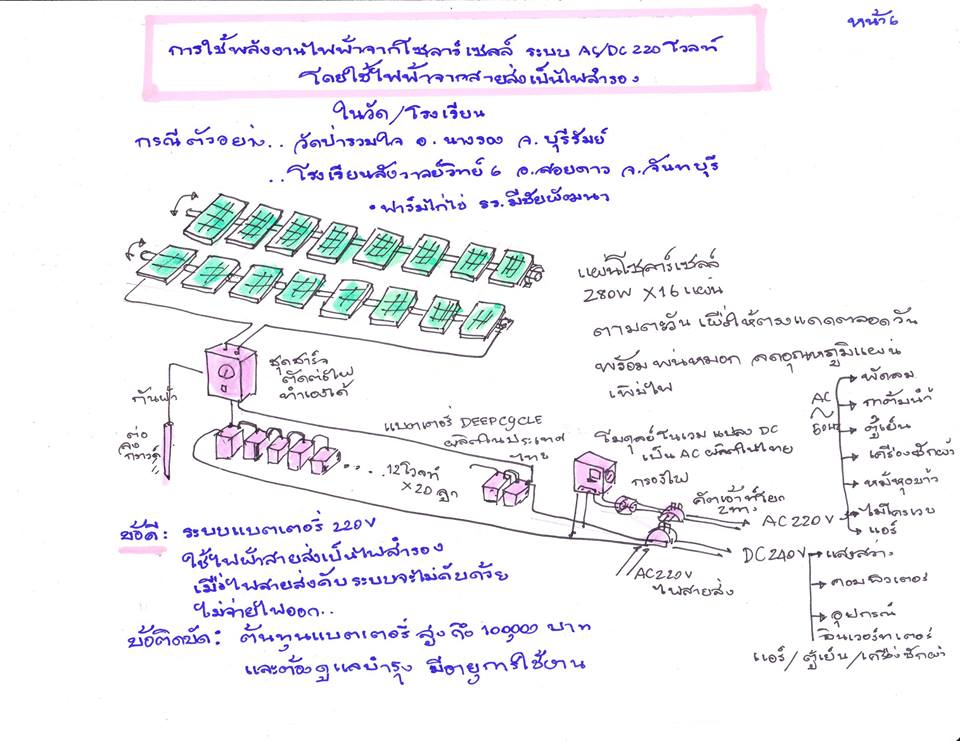 หน้า 6
การใช้พลังงานไฟฟ้าจากโซลาร์เซลล์ ระบบ AC/DC 220 โวลท์
โดยใช้ไฟฟ้าจากสายส่งเป็นไฟสำรอง
ในวัด/โรงเรียน
กรณีตัวอย่าง.. วัดป่ารวมใจ อ. นางรอง จ. บุรีรัมย์
..โรงเรียนสังวาลย์วิทย์ 6 อ.สอยดาว จ.จันทบุรี
• ฟาร์มไก่ไข่ รร.มีชัยพัฒนา
แผงโซลาร์เซลล์
280W X 16 แผ่น
ตามตะวัน เพื่อให้ตรงแดดตลอดวัน
พร้อมพ่นหมอก ลดอุณหภูมิแผ่น
เพิ่มไฟ
ชุดชาร์จ
ตัดต่อไฟ
ทำเองได้
กันฟ้า
ต่อ
ลง
กราวด์
แบตเตอรี่ DEEPCYCLE
ผลิตในประเทศ
ไทย
....12 โวลท์
X 20 ลูก
แปลง DC
เป็น AC ผลิตในไทย
กรองไฟ
คัตเอ้าท์โยก
2 ทาง
AC 220V
AC
~
50Hz
พัดลม
กาต้มน้ำ
ตู้เย็น
เครื่องซักผ้า
หม้อหุงข้าว
ไมโครเวบ
แอร์
DC 240V
แสงสว่าง
คอมพิวเตอร์
อุปกรณ์
อินเวอร์ทเตอร์
แอร์/ตู้เย็น/เครื่องซักผ้า
AC 220V
ไฟสายส่ง
ข้อดี: ระบบแบตเตอรี่ 220V
ใช้ไฟฟ้าสายส่งเป็นไฟสำรอง
เมื่อไฟสายส่งดับ ระบบจะไม่ดับด้วย
ไม่จ่ายไฟออก..
ข้อติดขัด: ต้นทุนแบตเตอรี่ สูงถึง 100,000 บาท
และต้องดูแลบำรุง มีอายุการใช้งาน